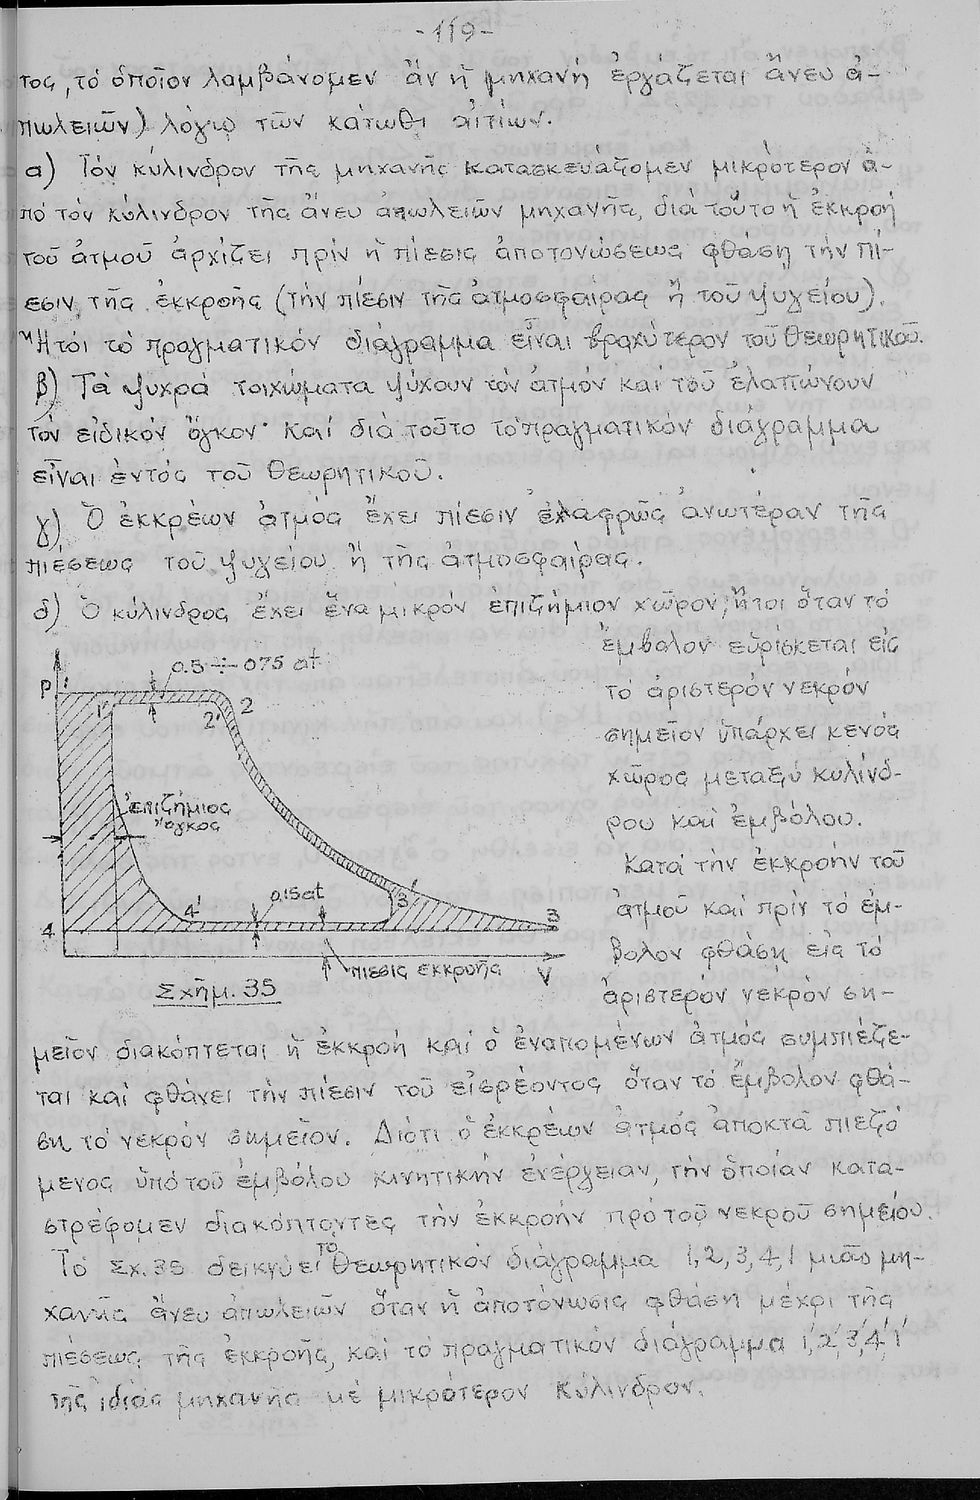 -119-
τος, τό ὁποῖον λαμβάνομεν ἄν ἡ μηχανή ἐργάζεται ἄνευ ἀ-
πωλειῶν) λόγῳ τῶν κάτωθι αἰτίων.
α) Τόν κύλινδρον τῆς μηχανῆς κατασκευάζομεν μικρότερον ἀ-
πό τόν κύλινδρον τῆς ἄνευ ἀπωλειῶν μηχανῆς, διά τοῦτο ἡ ἐκκροή
τοῦ ἀτμοῦ ἀρχίζει πρίν ἡ πίεσις ἀποτονώσεως φθάσῃ τήν πί-
εσιν τῆς ἐκκροῆς (τήν πίεσιν τῆς ἀτμοσφαίρας ἤ τοῦ ψυγείου).
Ἤτοι τό πραγματικόν διάγραμμα εἶναι βραχύτερον τοῦ θεωρητικοῦ.
β) Τά ψυχρά τοιχώματα ψύχουν τόν ἀτμόν καί τοῦ ἐλαττώνουν
τόν εἰδικόν ὄγκον· καί διά τοῦτο τό πραγματικόν διάγραμμα
εἶναι ἐντός τοῦ θεωρητικοῦ.
γ) Ὁ ἐκκρέων ἀτμός ἔχει πίεσιν ἐλαφρῶς ἀνωτέραν τῆς
πιέσεως τοῦ ψυγείου ἤ τῆς ἀτμοσφαίρας.
δ) Ὁ κύλινδρος ἔχει ἕνα μικρόν ἐπιζήμιον χῶρον, ἤτοι ὅταν τό
ἔμβολον εὑρίσκεται εἰς
τό ἀριστερόν νεκρόν
σημεῖον ὑπάρχει κενός
χῶρος μεταξύ κυλίνδ-
ρου καί ἐμβόλου.
Κατά τήν ἐκκροήν τοῦ
ἀτμοῦ καί πρίν τό ἔμ-
βολον φθάσῃ εἰς τό
ἀριστερόν νεκρόν ση-
P
1
1'
0.5 ÷ 0.75 at
2' 2
ἐπιζήμιος
ὄγκος
4'
0,15 at
3'
3
4
πίεσις ἐκκροῆς
V
Σχῆμ. 35
μεῖον διακόπτεται ἡ ἐκκροή καί ὁ ἐναπομένων ἀτμός συμπιέζε-
ται καί φθάνει τήν πίεσιν τοῦ εἰσρέοντος ὅταν τό ἔμβολον φθά-
σῃ τό νεκρόν σημεῖον. Διότι ὁ ἐκκρέων ἀτμός ἀποκτᾶ πιεζό
μενος ὑπό τοῦ ἐμβόλου κινητικήν ἐνέργειαν, τήν ὁποίαν κατα-
στρέφομεν διακόπτοντες τήν ἐκκροήν πρό τοῦ νεκροῦ σημείου.
Τό Σχ. 35 δεικνύει τό θεωρητικόν διάγραμμα 1, 2, 3, 4, 1 μιᾶς μη-
χανῆς ἄνευ ἀπωλειῶν ὅταν ἡ ἀποτόνωσις φθάσῃ μέχρι τῆς
πιέσεως τῆς ἐκκροῆς, καί τό πραγματικόν διάγραμμα 1', 2', 3', 4', 1'
τῆς ἰδίας μηχανῆς μέ μικρότερον κύλινδρον.